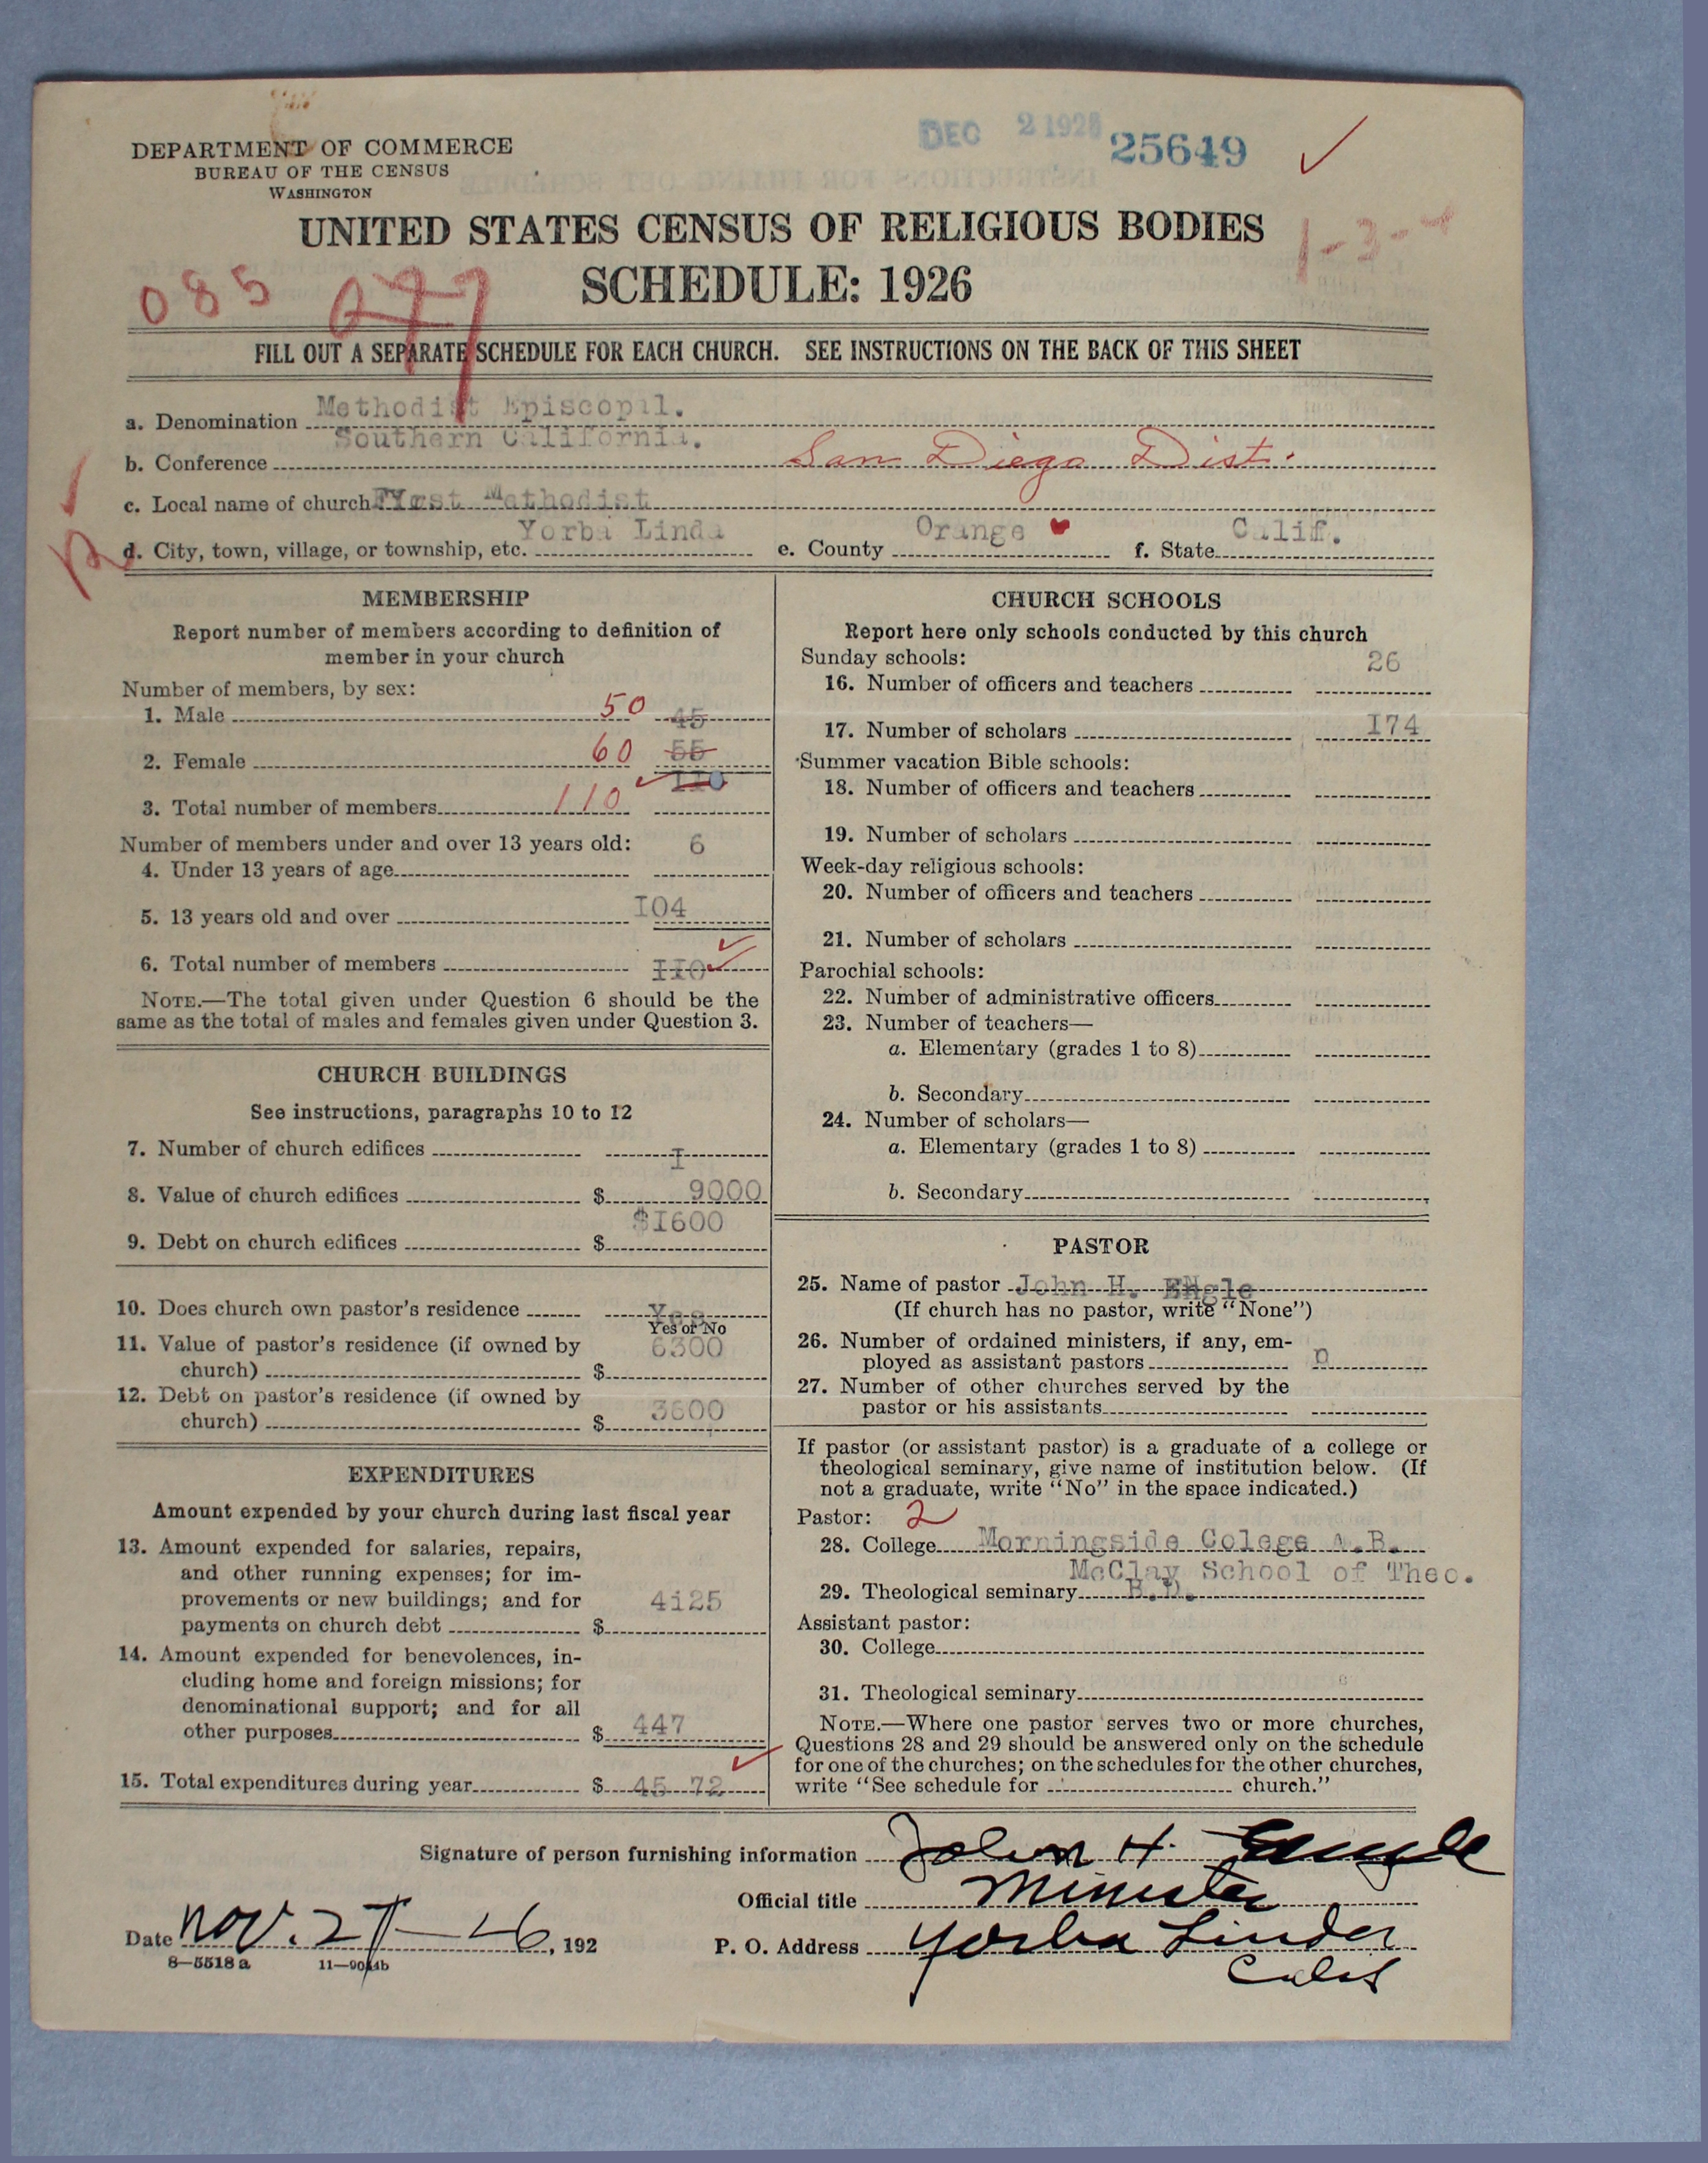 DEC 2 1926 25649
DEPARTMENT OF COMMERCE
BUREAU OF THE CENSUS
WASHINGTON
UNITED STATES CENSUS OF RELIGIOUS BODIES
1-3-4
SCHEDULE: 1926
085
FILL OUT A SEPARATE SCHEDULE FOR EACH CHURCH. SEE INSTRUCTIONS ON THE BACK OF THIS SHEET
a. Denomination Methodist Episcopal.
b. Conference Southern California. San Diego Dist.
c. Local name of church First Methodist
d. City, town, village, or township, etc. Yorba Linda e. County Orange f. State Calif.
MEMBERSHIP
Report number of members according to definition of
member in your church
Number of members, by sex:
1. Male 50 45
2. Female 60 55
3. Total number of members 110 110
Number of members under and over 13 years old:
4. Under 13 years of age 6
5. 13 years old and over I04
6. Total number of members II0
NOTE.—The total given under Question 6 should be the
same as the total of males and females given under Question 3.
CHURCH BUILDINGS
See instructions, paragraphs 10 to 12
7. Number of church edifices I
8. Value of church edifices $ 9000
9. Debt on church edifices $ $I600
10. Does church own pastor's residence Yes
Yes or No
11. Value of pastor's residence (if owned by
church) $ 6300
12. Debt on pastor's residence (if owned by
church) $ 3600
EXPENDITURES
Amount expended by your church during last fiscal year
13. Amount expended for salaries, repairs,
and other running expenses; for im-
provements or new buildings; and for
payments on church debt $ 4i25
14. Amount expended for benevolences, in-
cluding home and foreign missions; for
denominational support; and for all
other purposes $ 447
15. Total expenditures during year $ 45 72
CHURCH SCHOOLS
Report here only schools conducted by this church
Sunday schools:
16. Number of officers and teachers 26
17. Number of scholars I74
Summer vacation Bible schools:
18. Number of officers and teachers
19. Number of scholars
Week-day religious schools:
20. Number of officers and teachers
21. Number of scholars
Parochial schools:
22. Number of administrative officers
23. Number of teachers—
a. Elementary (grades 1 to 8)
b. Secondary
24. Number of scholars—
a. Elementary (grades 1 to 8)
b. Secondary
PASTOR
25. Name of pastor John H. Engle
(If church has no pastor, write "None")
26. Number of ordained ministers, if any, em-
ployed as assistant pastors n
27. Number of other churches served by the
pastor or his assistants
If pastor (or assistant pastor) is a graduate of a college or
theological seminary, give name of institution below. (If
not a graduate, write "No" in the space indicated.)
Pastor: 2
28. College Morningside Colege A.B.
McClay School of Theo.
29. Theological seminary B.D.
Assistant pastor:
30. College
31. Theological seminary
NOTE.—Where one pastor serves two or more churches,
Questions 28 and 29 should be answered only on the schedule
for one of the churches; on the schedules for the other churches,
write "See schedule for church."
Signature of person furnishing information John H. Engle
Official title Minister
Date Nov. 27-26, 192 P. O. Address Yorba Linda
Calif
8—5518 a 11—9044b